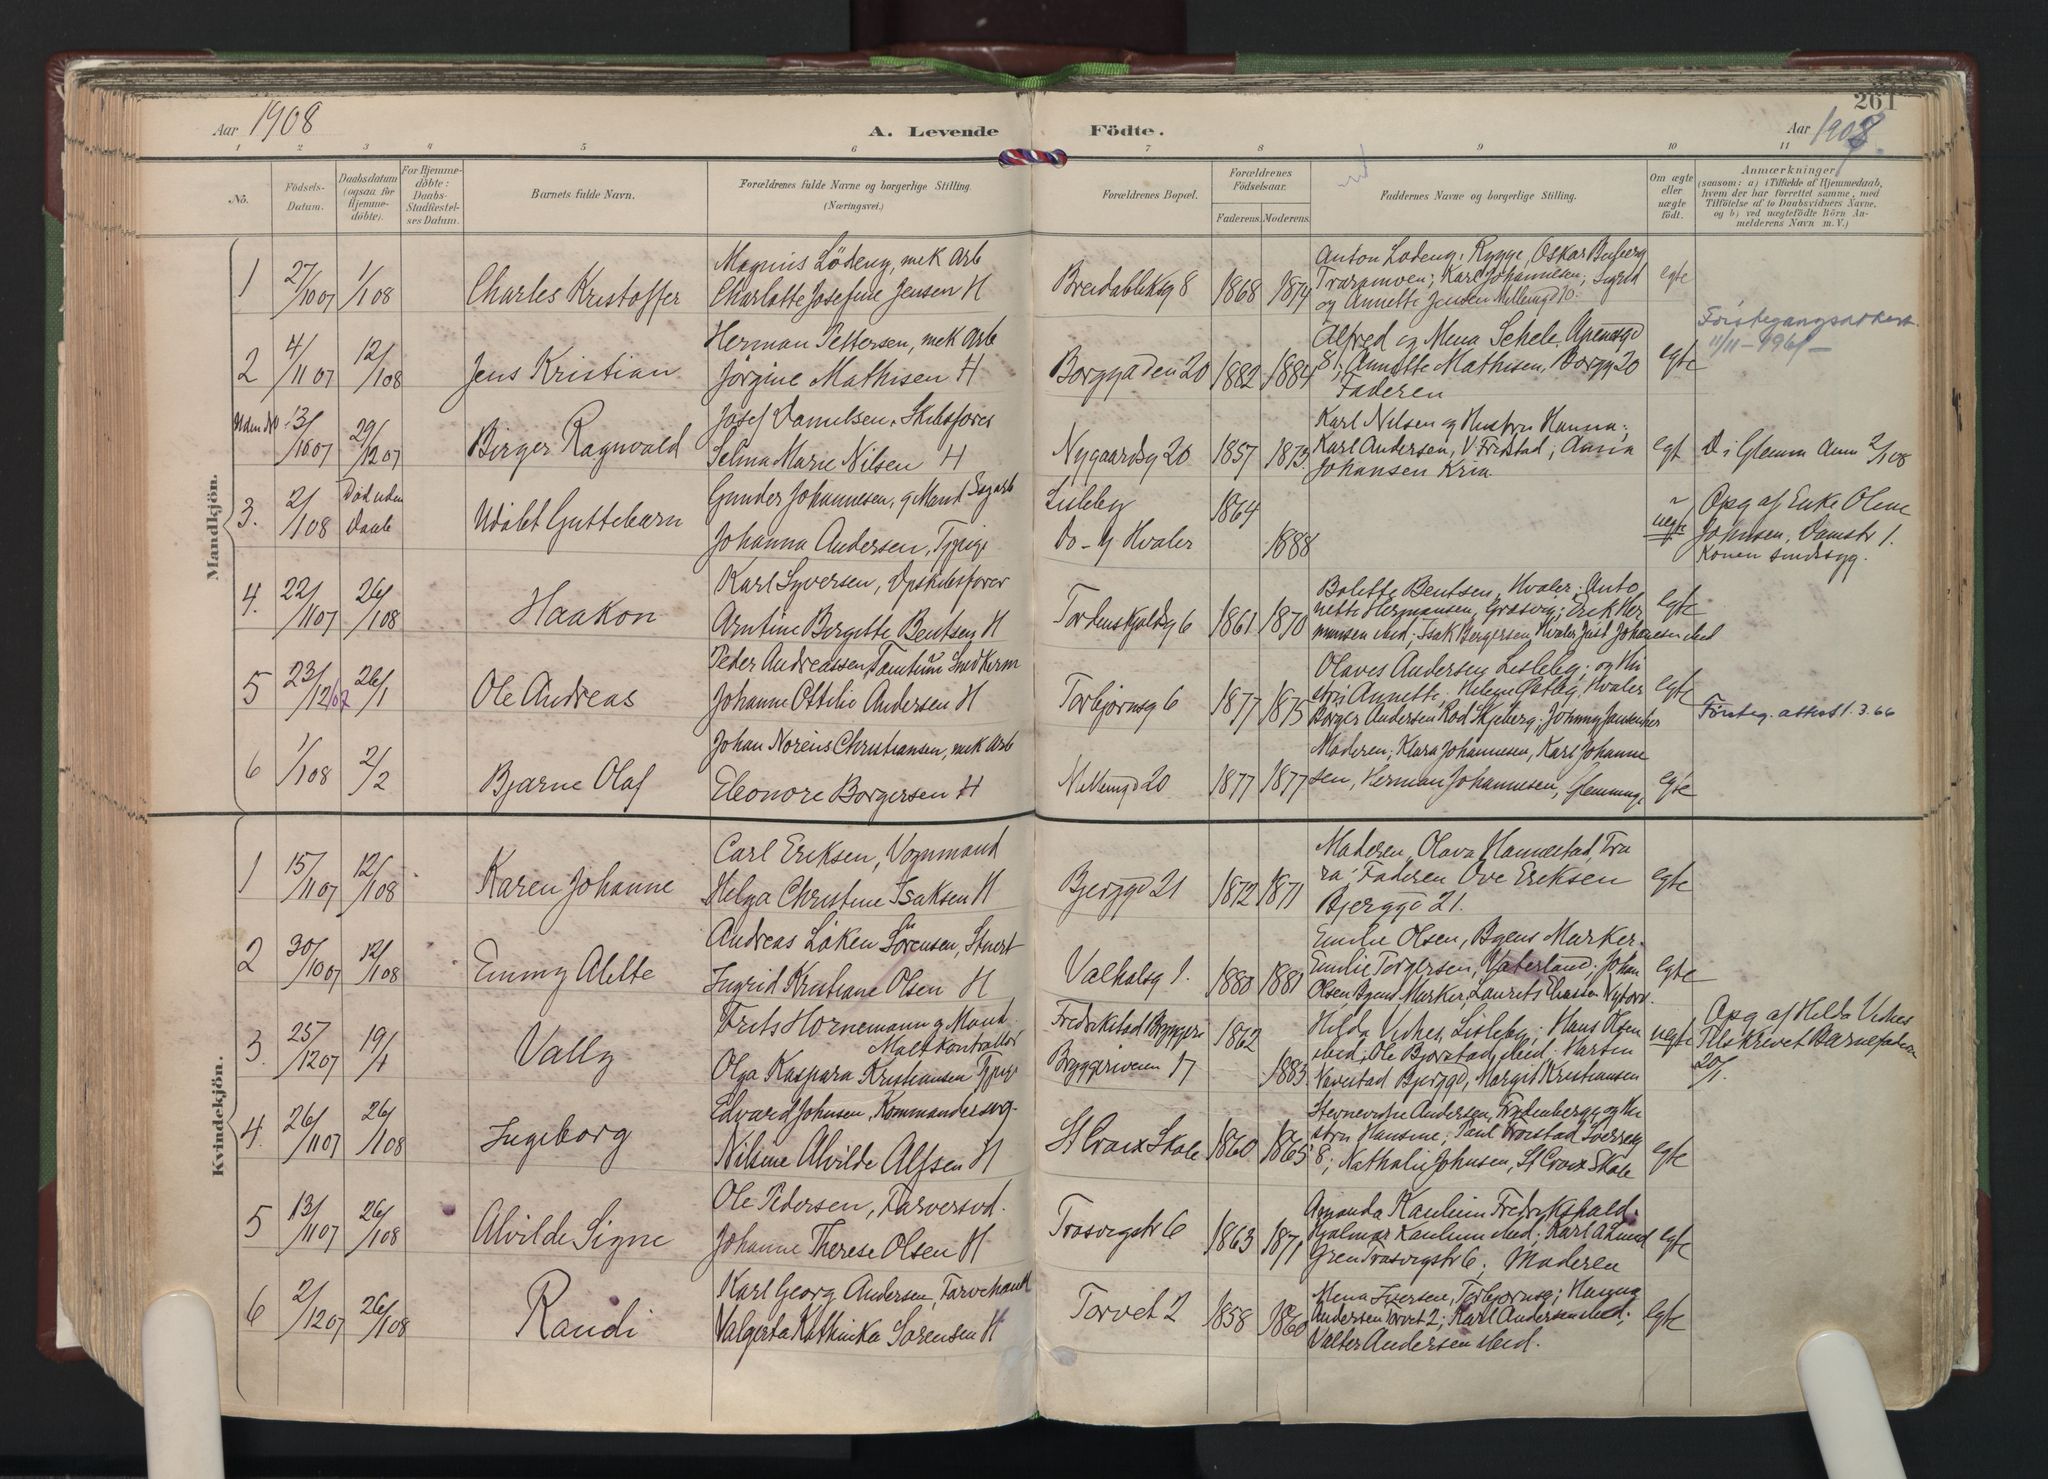 261
Aar 1908 A. Levende Födte. Aar 1908.
1 2 3 4 5 6 7 8 9 10 11
Nö. Födsels-Datum. Daabsdatum (ogsaa för Hjemmedöbte). For Hjemmedöbte: Daabs-Stadfæstelses Datum. Barnets fulde Navn. Forældrenes fulde Navne og borgerlige Stilling. (Næringsvei.) Forældrenes Bopæl. Forældrenes Födselsaar. Faderens. Moderens. Faddernes Navne og borgerlige Stilling. Om ægte eller uægte födt. Anmærkninger (saasom: a) i Tilfælde af Hjemmedaab, hvem der har forrettet samme, med Tilföielse af to Daabsvidners Navne, og b) ved uægtefödte Börn Anmelderens Navn m. V.)
Mandkjön.
1 27/10 07 1/1 08 Charles Kristoffer
Magnus Lödeng, mek Arb
Charlotte Josefine Jensen H
Breidablikkg 8 1868 1874
Anton Lodeng, Rygge, Oskar Buberg
Traramoen; Karl Johannesen; Sigrid
og Annette Jensen Nellemgd 10.
egte
2 4/11 07 12/1 08 Jens Kristian
Herman Pettersen, mek Arb
Jørgine Mathisen H
Borggaden 20 1882 1884
Alfred og Mena Schele, Apenesgd
8; Annette Mathisen, Borgg 20
Faderen
egte
Förstegangsattest
11/11-1961-
Uden No 13/10 07 29/12 07 Birger Ragnvald
Josef Danielsen, Skibsfører
Selma Marie Nilsen H
Nygaardsg 20 1857 1873
Karl Nilsen og Hustru Hanna;
Karl Andersen, V Fredstad; Anna
Johansen Kria
egt
D i Glemm Ann 2/1 08
3. 2/1 08 Död uden Daab Udöbt Guttebarn
Gunder Johannesen, g Mand Sagarb
Johanna Andersen, Tjpige
Lisleby 1864
Do - g Hvaler 1888
uegte
Opg af Enke Olene
Johnsen, Damstr 1.
Konen sindssyg.
4. 22/11 07 26/1 08 Haakon
Karl Syversen, Dpskibsfører
Arntine Bergette Bentsen H
Tordenskjoldsg 6 1861 1870
Bolette Bentsen, Hvaler; Anto
nette Hermansen, Gresvig; Erik Her
mansen ibid; Isak Bergersen Hvaler Just Johannesen ibid
egte
5 23/12/07 26/1 Ole Andreas
Peder Andreassen Tomtum Smedkerm
Johanne Ottilie Andersen H
Torbjørnsg 6 1877 1875
Olaves Andersen Lisleby; og Hu
stru Annette; Helene Østby, Hvaler
Borger Andersen Rød Skjeberg; Johnny Jansen her
egte
Førsteg. attest 1.3.66
6 1/1 08 2/2 Bjarne Olaf
Johan Norens Christiansen, mek Arb
Eleonore Borgersen H
Nellemgd 20 1877 1877
Moderen; Klara Johannesen, Karl Johanne
sen, Herman Johannesen, Glemmng.
egte
Kvindekjön.
1 15/11 07 12/1 08 Karen Johanne
Carl Eriksen, Vognmand
Helga Christine Isaksen H
Bjerggd 21 1872 1871
Moderen, Olava Hannestad, Tra
ra; Faderen Ove Eriksen
Bjerggd 21.
egte
2 30/10 07 12/1 08 Emmy Alette
Andreas Löken Sörensen, Stuert
Ingrid Kristiane Olsen H
Valhalsg 1. 1880 1881
Emilie Olsen, Byens Marker.
Emilie Torgersen, Vaterland; Johan
Olsen, Byens Marker, Laurits Eliassen Nybors.
egte
3. 25/12 07 19/1 Vally
Frits Hornemann g Mand.
Maltkontrollør
Olga Kaspara Kristiansen Tjpige
Fredrikstad Bryggeri 1862
Bryggeriveien 17 1883.
Hilda Vidnes, Lisleby; Hans Olsen
ibid; Ole Bjørstad, ibid; Martin
Navestad Bjerggd, Margit Kristiansen
uegte
Opg af Hilda Vidnes
Tilskrevet Barnefaderen
20/1.
4. 26/11 07 26/1 08 Ingeborg
Edvard Johnsen, Kommandersrg.
Nilsine Alvilde Alfsen H
St Croix Skole 1860 1865
Stevnevidne Andersen, Frydenbergg og Hu
stru Hansine; Paul Frorstad Sverresg
8; Nathalie Johnsen, St Croix Skole
egte
5 13/11 07 26/1 08 Alvilde Signe
Ole Pedersen, Farversvd.
Johanne Therese Olsen H
Trosvigstr 6 1863 1871
Amanda Kaulum Fredrikshald;
Hjalmar Kaulum ibid; Karl Almed
Gren Trosvigstr 6; Moderen
egte
6 2/12 07 26/1 08 Randi
Karl Georg Andersen, Farvehandl
Valgerta Kathinka Sörensen H
Torvet 2 1858 1860
Mena Iversen, Torbjornsg; Hanna
Andersen Torvet 2; Karl Andersen ibid;
Valter Andersen ibid.
egte